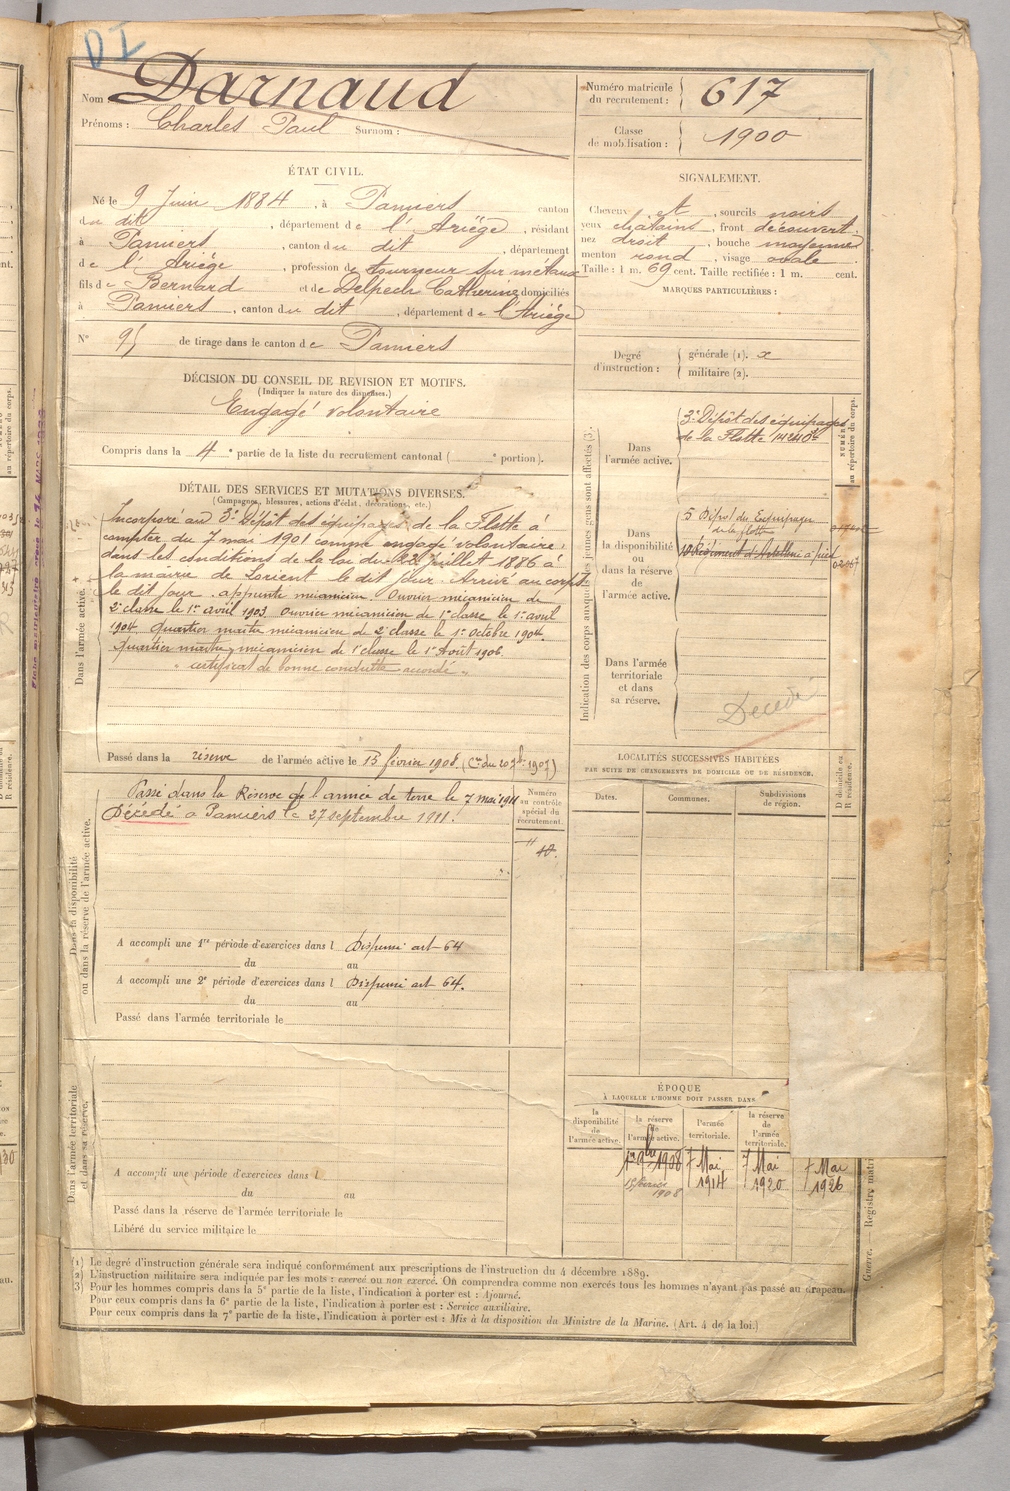 DI
Nom Darnaud
Prénoms : Charles Paul Surnom :
Numéro matricule du recrutement : 617
Classe de mobilisation : 1900
ÉTAT CIVIL.
Né le 9 Juin 1884, à Pamiers canton
du dit, département de l'Ariège, résidant
à Pamiers, canton du dit, département
de l'Ariège, profession de tourneur sur métaux
fils de Bernard et de Delpech Catherine domiciliés
à Pamiers, canton du dit, département de l'Ariège
N° 95 de tirage dans le canton de Pamiers
SIGNALEMENT.
Cheveux et, sourcils noirs
yeux chatains, front découvert
nez droit, bouche moyenne
menton rond, visage ovale.
Taille : 1 m. 69 cent. Taille rectifiée : 1 m. cent.
MARQUES PARTICULIÈRES :
DÉCISION DU CONSEIL DE REVISION ET MOTIFS.
(Indiquer la nature des dispenses.)
Engagé volontaire
Compris dans la 4e partie de la liste du recrutement cantonal ( e portion).
Degré d'instruction : générale (1). x
militaire (2).
DÉTAIL DES SERVICES ET MUTATIONS DIVERSES.
(Campagnes, blessures, actions d'éclat, décorations, etc.)
Dans l'armée active.
Incorporé au 3e Dépôt des équipages de la Flotte à
compter du 7 mai 1901 comme engagé volontaire
dans les conditions de la loi du 22 Juillet 1886 à
la mairie de Lorient le dit jour. Arrivé au corps
le dit jour. apprenti mécanicien. Ouvrier mécanicien de
2e classe le 1er avril 1903. Ouvrier mécanicien de 1e classe le 1er avril
1904. Quartier maitre mécanicien de 2e classe le 1er Octobre 1904.
Quartier maitre mécanicien de 1e classe le 1er Août 1906.
" certificat de bonne conduite accordé "
Passé dans la réserve de l'armée active le 15 février 1908. (Cre du 20 7bre 1907)
Indication des corps auxquels les jeunes gens sont affectés (3).
NUMÉRO au répertoire du corps.
Dans l'armée active.
3e Dépôt des équipages
de la Flotte 14240
Dans la disponibilité ou dans la réserve de l'armée active.
5 Dépot des Equipages
de la flotte
10 Régiment d'Artillerie à pied
Dans l'armée territoriale et dans sa réserve.
Décédé
Dans la disponibilité ou dans la réserve de l'armée active.
Passé dans la Réserve de l'armée de terre le 7 mai 1911
Décédé à Pamiers le 27 septembre 1911.
Numéro au contrôle spécial du recrutement.
"
40.
A accompli une 1re période d'exercices dans l Dispensé art 64
du au
A accompli une 2e période d'exercices dans l Dispensé art 64.
du au
Passé dans l'armée territoriale le
LOCALITÉS SUCCESSIVES HABITÉES
PAR SUITE DE CHANGEMENTS DE DOMICILE OU DE RÉSIDENCE.
Dates.
Communes.
Subdivisions de région.
D domicile ou R résidence.
Dans l'armée territoriale et dans sa réserve.
A accompli une période d'exercices dans l
du au
Passé dans la réserve de l'armée territoriale le
Libéré du service militaire le
ÉPOQUE
À LAQUELLE L'HOMME DOIT PASSER DANS
la disponibilité de l'armée active.
la réserve de l'armée active.
l'armée territoriale.
la réserve de l'armée territoriale.
1908
15 février 1908
7 Mai 1914
7 Mai 1920
7 Mai 1926
(1) Le degré d'instruction générale sera indiqué conformément aux prescriptions de l'instruction du 4 décembre 1889.
(2) L'instruction militaire sera indiquée par les mots : exercé ou non exercé. On comprendra comme non exercés tous les hommes n'ayant pas passé au drapeau.
(3) Pour les hommes compris dans la 5e partie de la liste, l'indication à porter est : Ajourné.
Pour ceux compris dans la 6e partie de la liste, l'indication à porter est : Service auxiliaire.
Pour ceux compris dans la 7e partie de la liste, l'indication à porter est : Mis à la disposition du Ministre de la Marine. (Art. 4 de la loi.)
Guerre. — Registre matri